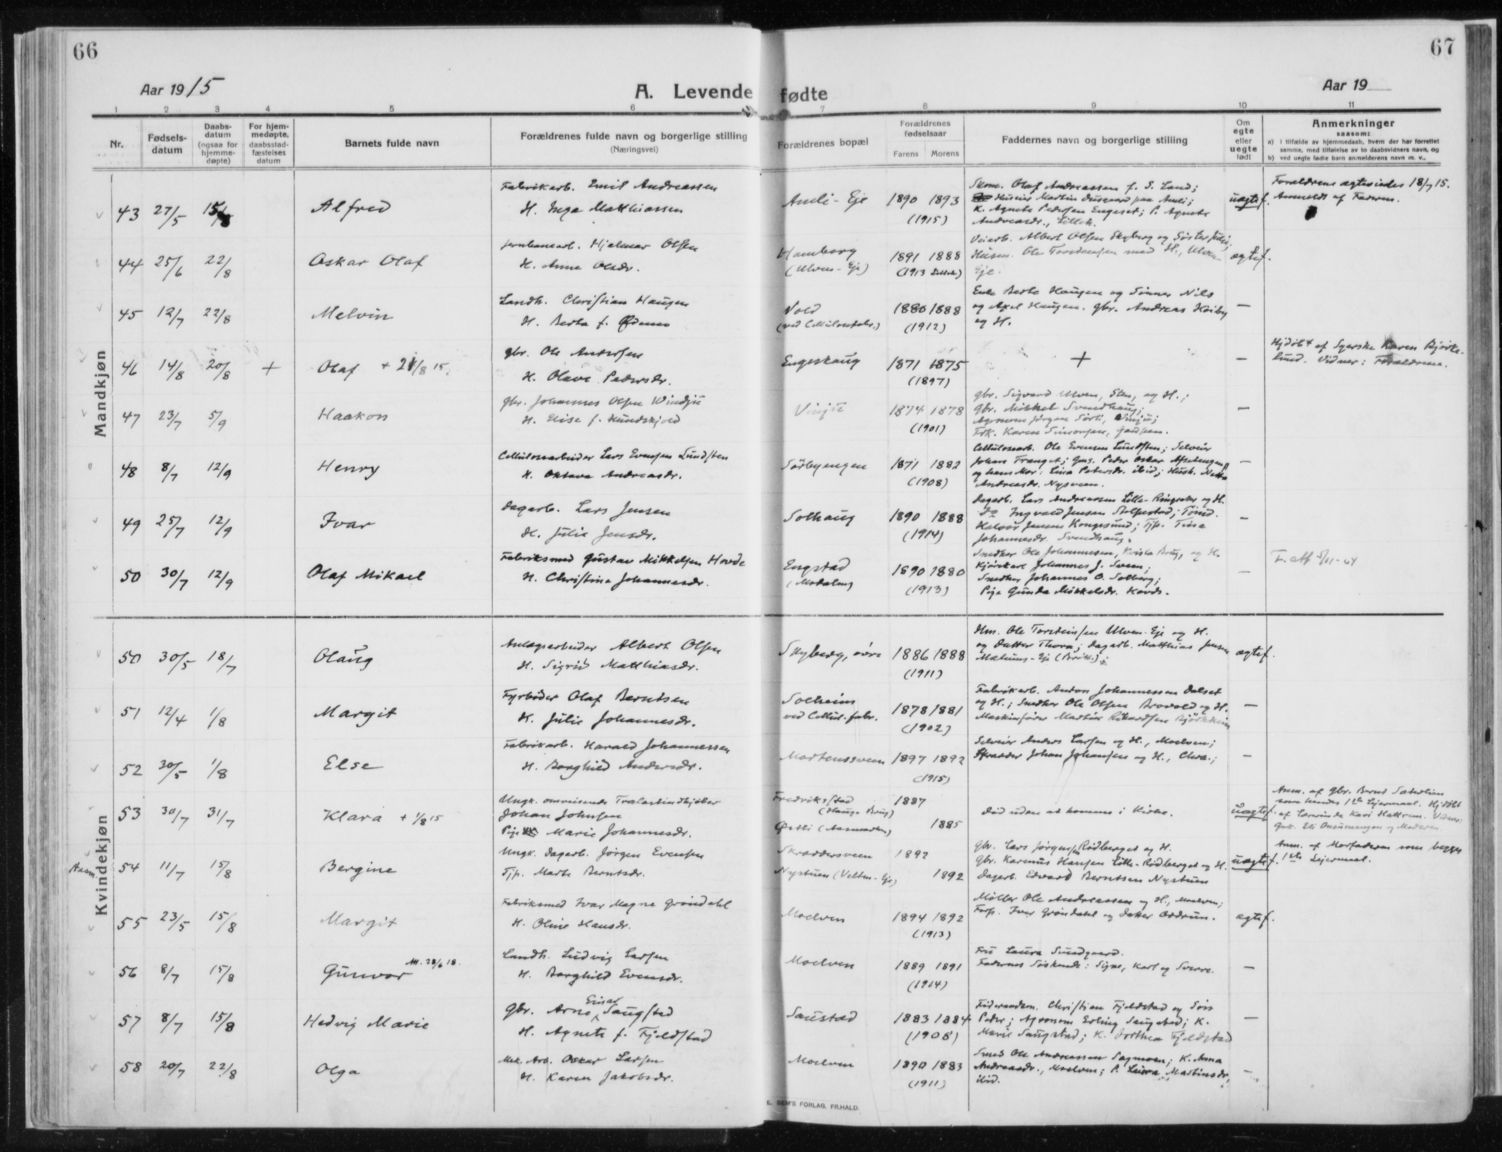 66
67
Aar 1915
A. Levende fødte
Aar 19
1 2 3 4 5 6 7 8 9 10 11
Nr.
Fødsels-
datum
Daabs-
datum
(ogsaa for
hjemme-
døpte)
For hjem-
medøpte,
daabsstad-
fæstelses
datum
Barnets fulde navn
Forældrenes fulde navn og borgerlige stilling
(Næringsvei)
Forældrenes bopæl
Forældrenes
fødselsaar
Farens Morens
Faddernes navn og borgerlige stilling
Om
egte
eller
uegte
født
Anmerkninger
saasom:
a) i tilfælde av hjemmedaab, hvem der har forrettet
samme, med tilføielse av to daabsvidners navn, og
b) ved uegte fødte barn anmelderens navn m. v.,
Mandkjøn
43 27/5 15/8 Alfred
Fabrikarb. Emil Andreassen
H. Inga Matthiassen
Amli-Eje
1890 1893
(1915)
Skom. Olaf Andreassen f. S. Land;
K. Agnete Pedersen Engeset; P. Agnete
Andreasdr., Lillek.
uægtef.
Forældrene ægteviedes 18/7 15.
Anmeldt af Faderen.
44 25/6 22/8 Oskar Olaf
Jernbanearb. Hjelmar Olsen
H. Anna Olsdr.
(Ulven-Eje)
1891 1888
Veiarb. Albert Olsen Skyberg og Søster Julie;
Husm. Ole Torsteinsen med H., Ulven
Eje.
ægtef.
45 12/7 22/8 Melvin
Landh. Christian Haugen
H. Berta f. Ødemo
Vold
(ved Cellulosefabr.)
1880 1888
(1912)
Enke Berte Haugen og Sønner Nils
og Axel Haugen. Gbr. Andreas Køiby
og H.
—
46 14/8 20/8 + Olaf + 21/8 15.
Gbr. Ole Andersen
H. Olave Pedersdr.
Engeskaug
1871 1875
(1897)
+
—
Hjdbt af Sygerske Karen Bjørke-
lund. Vidner: Forældrene.
47 23/7 5/9 Haakon
Gbr. Johannes Olsen Windju
H. Elise f. Hundskjold
Vinju
1874 1878
(1901)
Gbr. Sigvard Ulven, Elen, og H.;
Gbr. Mikkel Svendhaug;
Agronom Jørgen Sørli, Vinju;
Frk. Karen Simonsen,
—
48 8/7 12/9 Henry
Cellulosearbeider Lars Evensen Lundsten
H. Oktava Andreasdr.
Sørbyengen
1871 1882
(1908)
Cellulosearb. Ole Evensen Lundsten; Selveier
Andreasdr. Nysveen.
—
49 25/7 12/9 Ivar
Dagarb. Lars Jensen
H. Julie Jensdr.
Solhaug
1890 1888
(1914)
Dagarb. Lars Andreassen Lille-Ringsaker og H.
Do Ingvald Jensen Stolpestad; Tømd.
Halvor Jensen Kongssund; Tjp. Tina
Johannesdr. Svendhaug.
—
50 30/7 12/9 Olaf Mikael
Fabriksmed Gustav Mikkelsen Hovde
H. Christine Johannesdr.
Engstad
(Modalen)
1890 1880
(1913)
Snedker Ole Johannessen, Kviste Brug, og H.
Kjørekarl Johannes J. Sveen;
Snedker Johannes O. Solberg;
Pige Gunda Mikkelsdr. Hovde.
—
F. att 5/11-54
Kvindekjøn
50 30/5 18/7 Olaug
Anlægsarbeider Albert Olsen
H. Sigrid Matthiasdr.
Skyberg, øvre
1886 1888
(1911)
Hsm. Ole Torsteinsen Ulven-Eje og H.
og Datter Thora; Dagarb. Matthias Jensen
Mælums-Eje (Brøtt.);
ægtef.
51 12/4 1/8 Margit
Fyrbøder Olaf Berntsen
H. Julie Johannesdr.
Solheim
ved Cellul.fabr.
1878 1881
(1902)
Fabrikarb. Anton Johannessen Dalset
og H.; Snedker Ole Olsen Brovold og H.
Maskinfører Martin Rikardsen Bjørkheim
—
52 30/5 1/8 Else
Fabrikarb. Harald Johannessen
H. Borghild Andersdr.
Martenssveen
1897 1892
(1915)
Selveier Anders Larsen og H., Moelven;
Skrædder Johan Johansen og H., Chra.;
—
53 30/7 31/7 Klara + 1/8 15
Ungk. omreisende
Johan Johnsen
Pige Marie Johannesdr.
Fredriksstad
(Haugs Brug)
Ørsli (Aasmarken)
1887
1885
Død uden at komme i Kirke.
uægtef.
Anm. af Gbr. Bernt Sæterlien
som hendes 1ste Leiermaal. Hjdøbt
af Lærerinde Kari Hattrem. Vidner:
54 11/7 15/8 Bergine
Ungk. Dagarb. Jørgen Evensen
Tjp. Marte Berntsdr.
Skræddersveen
Nystuen (Veltm-Eje)
1892
1892
Gbr. Lars Jørgensen Rødberget og H.
Gbr. Karenus Hansen Lille-Rødberget og H.
Dagarb. Edvard Berntsen Nystuen
uægtef.
Anm. af Morfaderen som begges
1ste Leiermaal.
55 23/5 15/8 Margit
Fabriksmed Ivar Magne Grøndahl
H. Oline Hansdr.
Moelven
1894 1892
(1913)
Møller Ole Andreassen og H., Moelven;
Forp. Iver Grøndahl og Datter Oddrun.
ægtef.
56 8/7 15/8 Gunvor
Landh. Ludvig Larsen
H. Borghild Evensdr.
Moelven
1889 1891
(1914)
Fru Laura Sundgaard.
Faderens Søskende: Signe, Karl og Sverre.
—
57 8/7 15/8 Hedvig Marie
Gbr. Arne Einar Saugstad
H. Agnete f. Fjeldstad
Saustad
1883 1884
(1908)
Føderaadsm. Christian Fjeldstad og Søn
Peder; Agronom Erling Saugstad; K.
Marie Saugstad; K. Dorthea Fjeldstad
—
58 20/7 22/8 Olga
Mek. Arb. Oskar Larsen
H. Karen Jakobsdr.
Moelven
1890 1883
(1911)
Smed Ole Andreassen Sagmoen; K. Anna
Andreasdr., Moelven; P. Laura Martinsdr.,
ibid.
—
E. SEM'S FORLAG, FR.HALD.